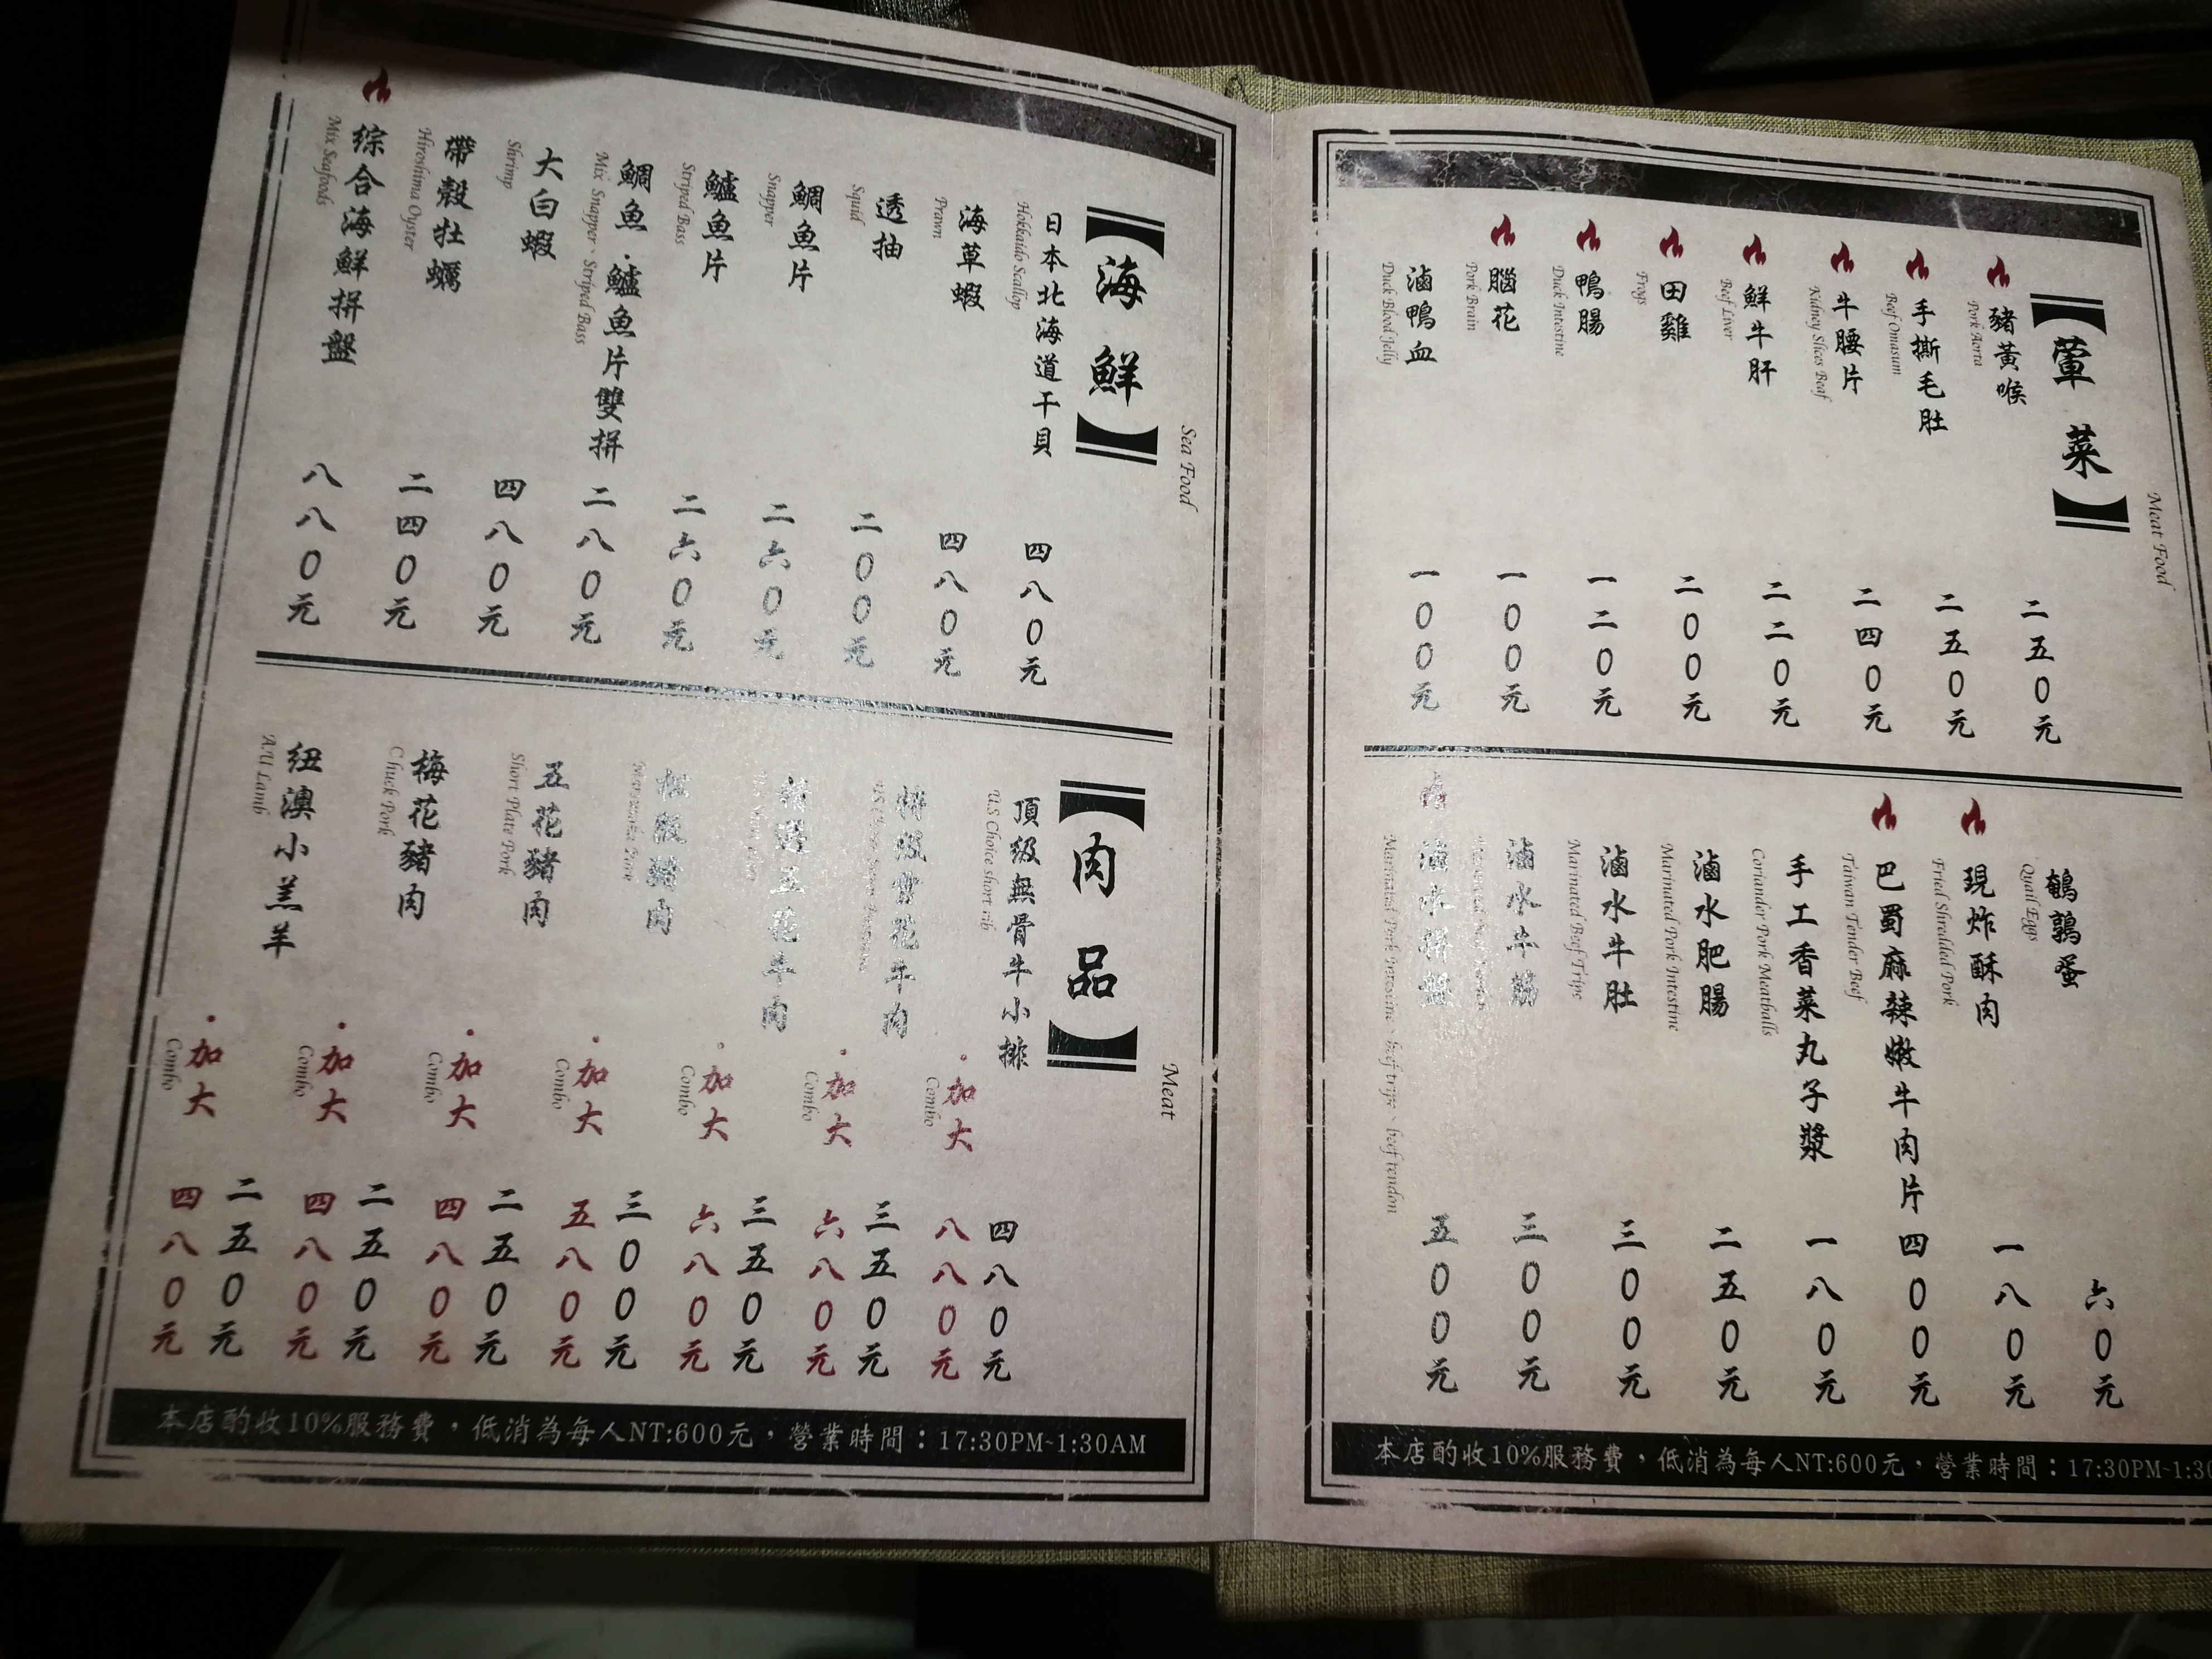 【葷菜】
Meat Food
豬黃喉
Pork Aorta
二五0元
手撕毛肚
Beef Omasum
二五0元
牛腰片
Kidney Slices Beaf
二四0元
鮮牛肝
Beef Liver
二二0元
田雞
Frogs
二00元
鴨腸
Duck Intestine
一二0元
腦花
Pork Brain
一00元
滷鴨血
Duck Blood Jelly
一00元
鵪鶉蛋
Quail Eggs
六0元
現炸酥肉
Fried Shredded Pork
一八0元
巴蜀麻辣嫩牛肉片
Taiwan Tender Beef
四00元
手工香菜丸子漿
Coriander Pork Meatballs
一八0元
滷水肥腸
Marinated Pork Intestine
二五0元
滷水牛肚
Marinated Beef Tripe
三00元
滷水牛筋
三00元
滷水拼盤
Marinated Pork Intestine、beef tripe、beef tendon
五00元
本店酌收10%服務費，低消為每人NT:600元，營業時間：17:30PM~1:30
【海鮮】
Sea Food
日本北海道干貝
Hokkaido Scallop
四八0元
海草蝦
Prawn
四八0元
透抽
Squid
二00元
鯛魚片
Snapper
二六0元
鱸魚片
Striped Bass
二六0元
鯛魚·鱸魚片雙拼
Mix Snapper、Striped Bass
二八0元
大白蝦
Shrimp
四八0元
帶殼牡蠣
Hiroshima Oyster
二四0元
综合海鮮拼盤
Mix Seafoods
八八0元
【肉品】
Meat
頂級無骨牛小排
US Choice short rib
四八0元
·加大
Combo
八八0元
特級雪花牛肉
三五0元
·加大
Combo
六八0元
精選五花牛肉
三五0元
·加大
Combo
六八0元
松阪豬肉
三00元
·加大
Combo
五八0元
五花豬肉
Short Plate Pork
二五0元
·加大
Combo
四八0元
梅花豬肉
Chuck Pork
二五0元
·加大
Combo
四八0元
纽澳小羔羊
AU Lamb
二五0元
·加大
Combo
四八0元
本店酌收10%服務費，低消為每人NT:600元，營業時間：17:30PM~1:30AM